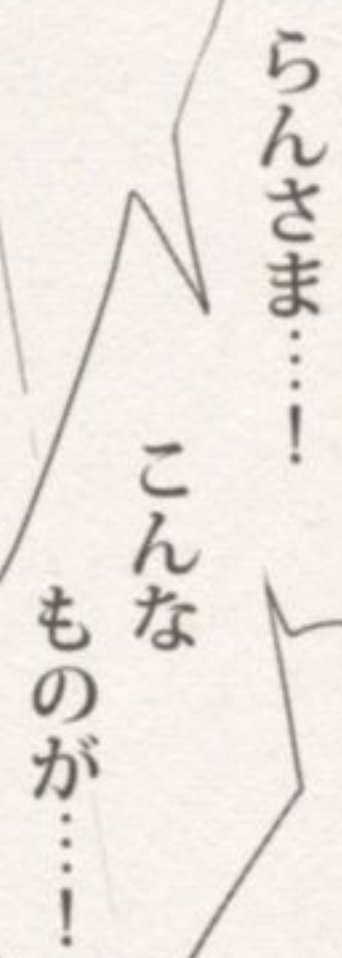 らんさま…！
こんな
ものが…！